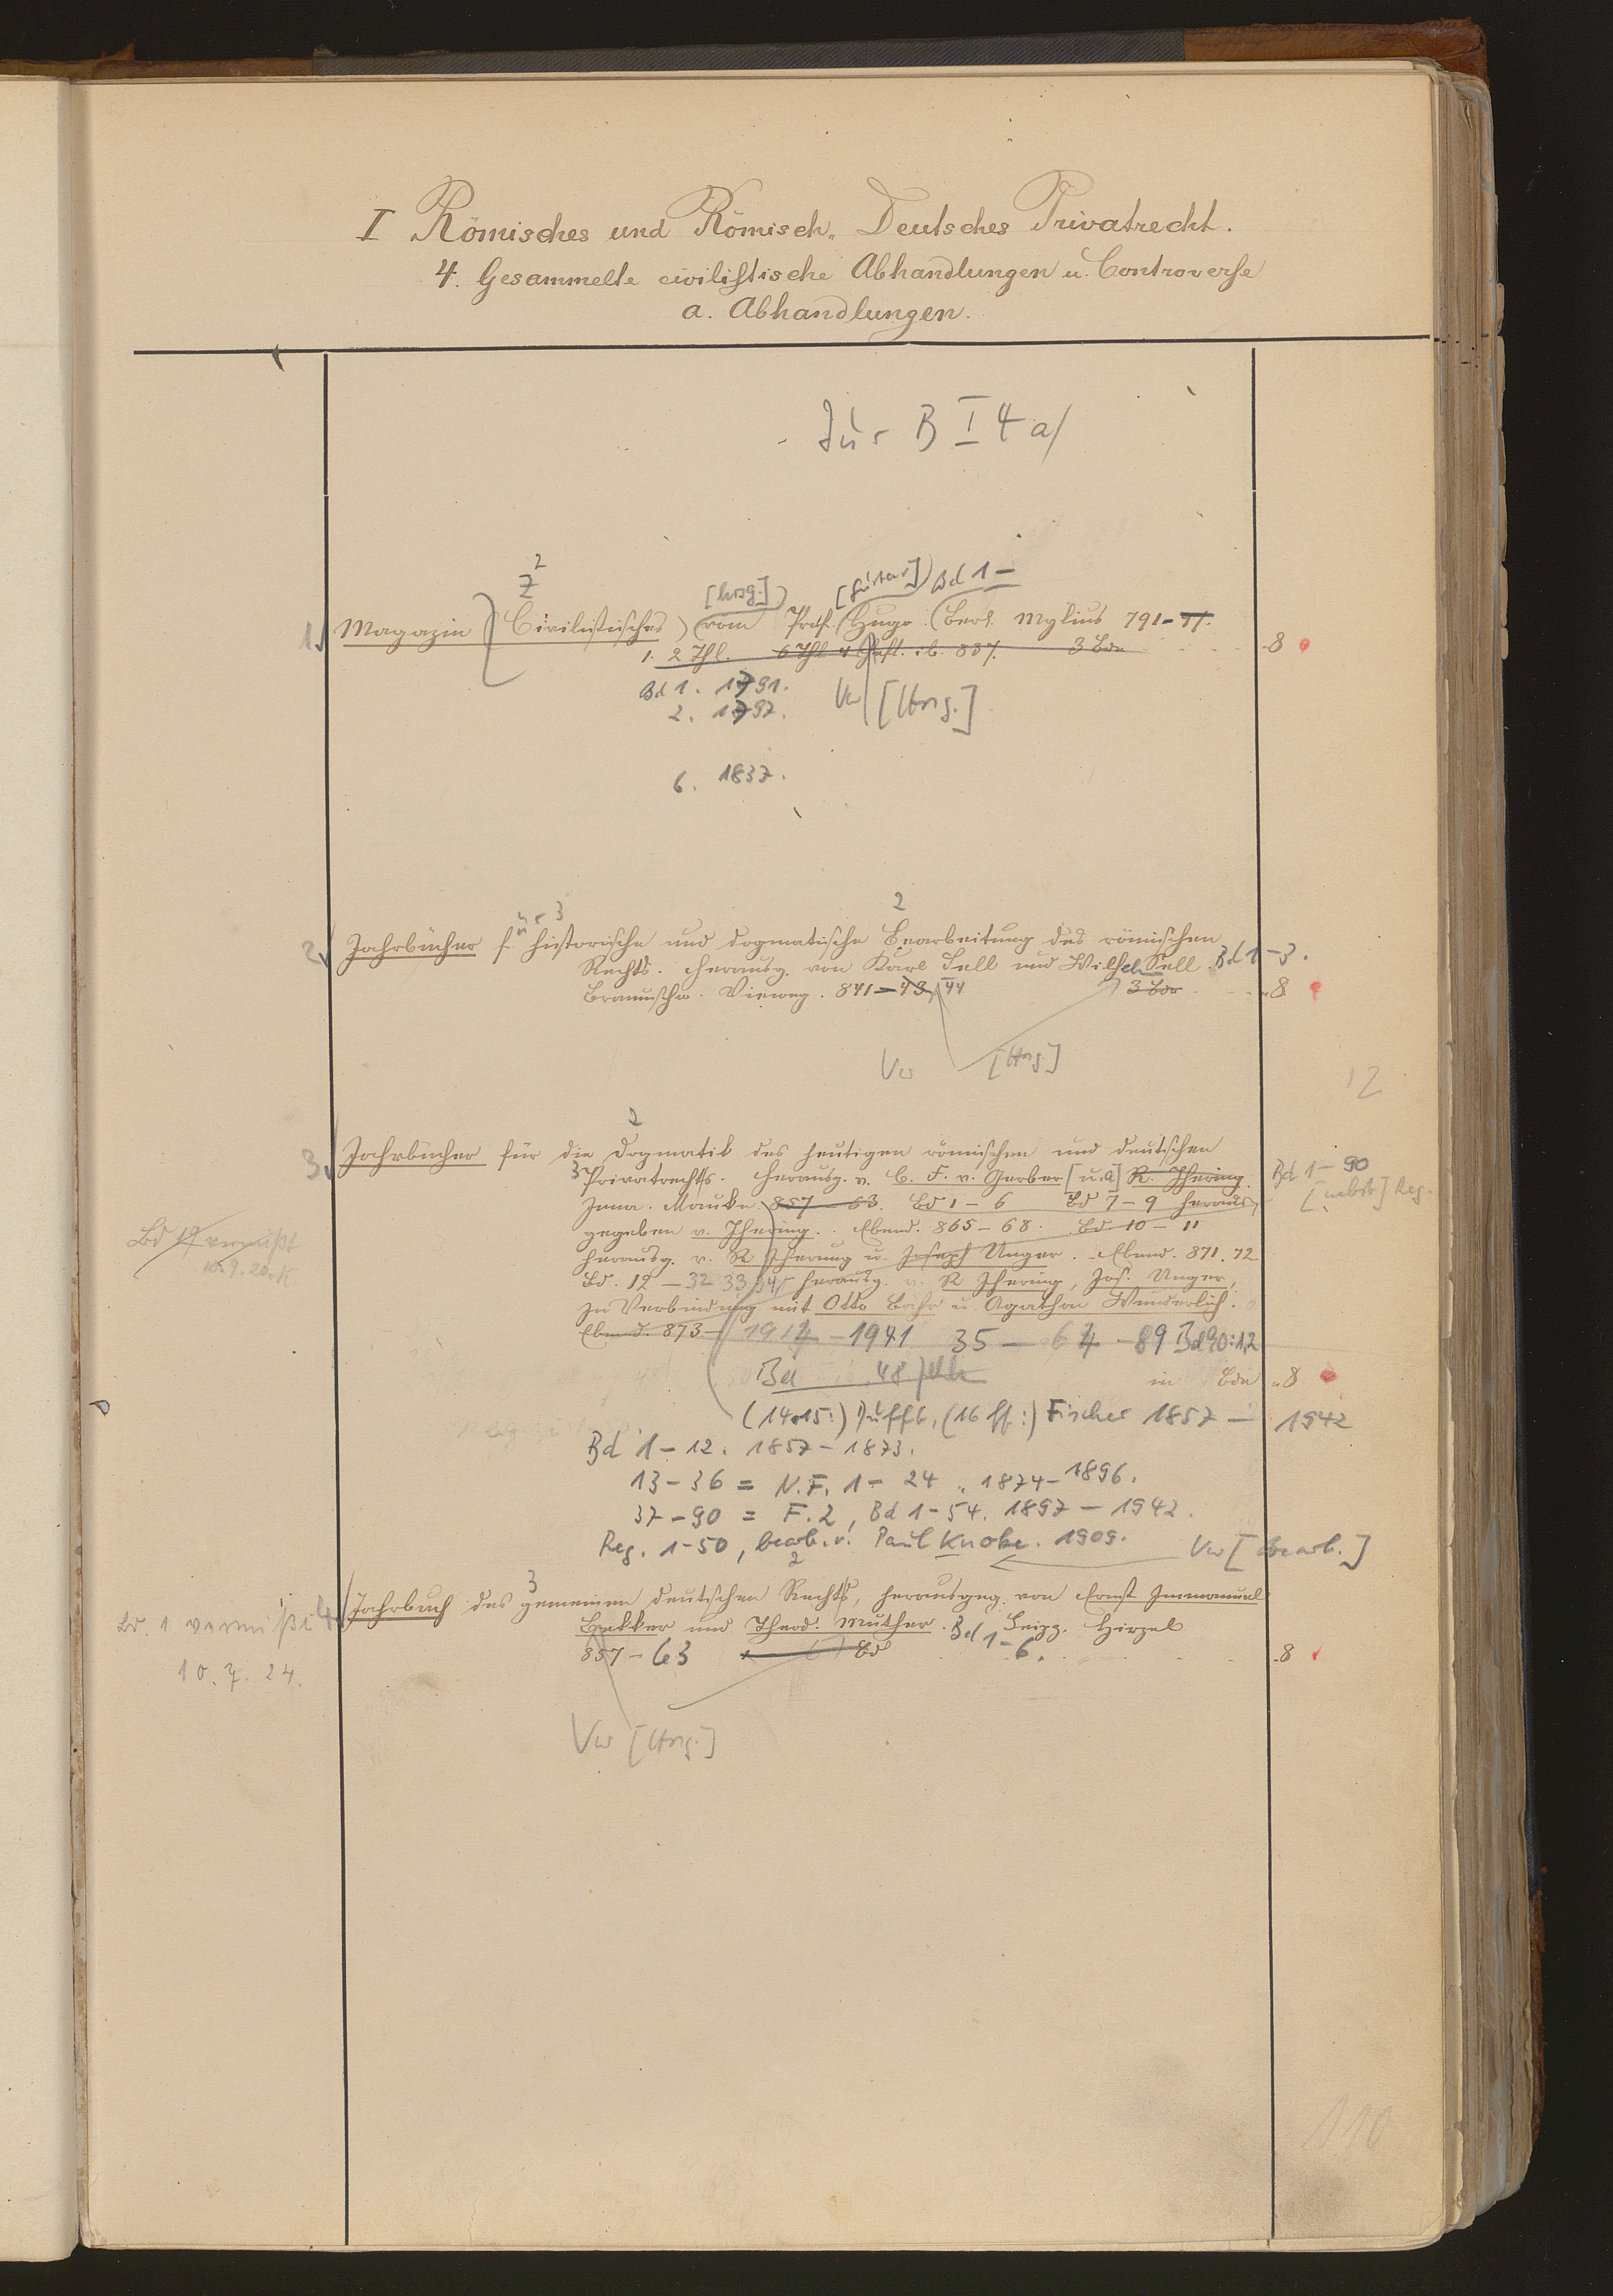 I Römisches und Römisch-Deutsches Privatrecht.
4. Gesammelte civilistische Abhandlungen u. Controverse
a. Abhandlungen.
Jur B I 4 a/
2
[hrsg.] [Gustav] Bd 1 –
1. Magazin Civilistisches vom Prof. Hugo. Berl. Mylius 791–
1. 2 Thl. 6 Thl. 4 Heft. ib. 837. 3 Bde 8
Bd 1. 1791.
Vw [Hrsg.]
2. 1797.
6. 1837.
3 2
2. Jahrbücher für historische und dogmatische Bearbeitung des römischen
Rechts. Herausg. von Karl Sell und Wilhelm Sell Bd 1–3.
Braunschw. Vieweg. 841–43, 44 3 Bde 8
Vw [Hrsg]
12
2
3. Jahrbücher für die Dogmatik des heutigen römischen und deutschen
3 Privatrechts. Herausg. v. C. F. v. Gerber [u.a] R. Jhering. Bd 1–90
Jena. Mauke. 857–63. Bd 1–6 Bd 7–9 heraus- [nebst] Reg.
gegeben v. Jhering. Ebend. 865–68. Bd. 10–11
Bd 19 vermißt
10.9.20. K
herausg. v. R Jhering u. Joseph Unger. Ebend. 871.72
Bd. 12–32 33, 34 herausg. v. R Jhering, Jos. Unger,
In Verbindung mit Otto Bähr u Agathon Wunderlich.
Ebend. 873– 1914 –1941 35–64 –89 Bd 90:1,2
Bd 48 fehlt in Bdn 8
(14.15:) Dufft, (16 ff:) Fischer 1857 – 1942
Bd 1–12. 1857–1873.
13–36 = N.F. 1–24. 1874–1896.
37–90 = F.2, Bd 1–54. 1897–1942.
Reg. 1–50, bearb. v. Paul Knoke. 1909. Vw [bearb.]
3 2
4. Jahrbuch des gemeinen deutschen Rechts, herausgeg. von Ernst Immanuel
Bd. 1 vermißt
10.7.24.
Bekker und Theod. Muther. Leipz. Hirzel
857–63 Bd Bd 1–6. 8
Vw [Hrsg.]
110